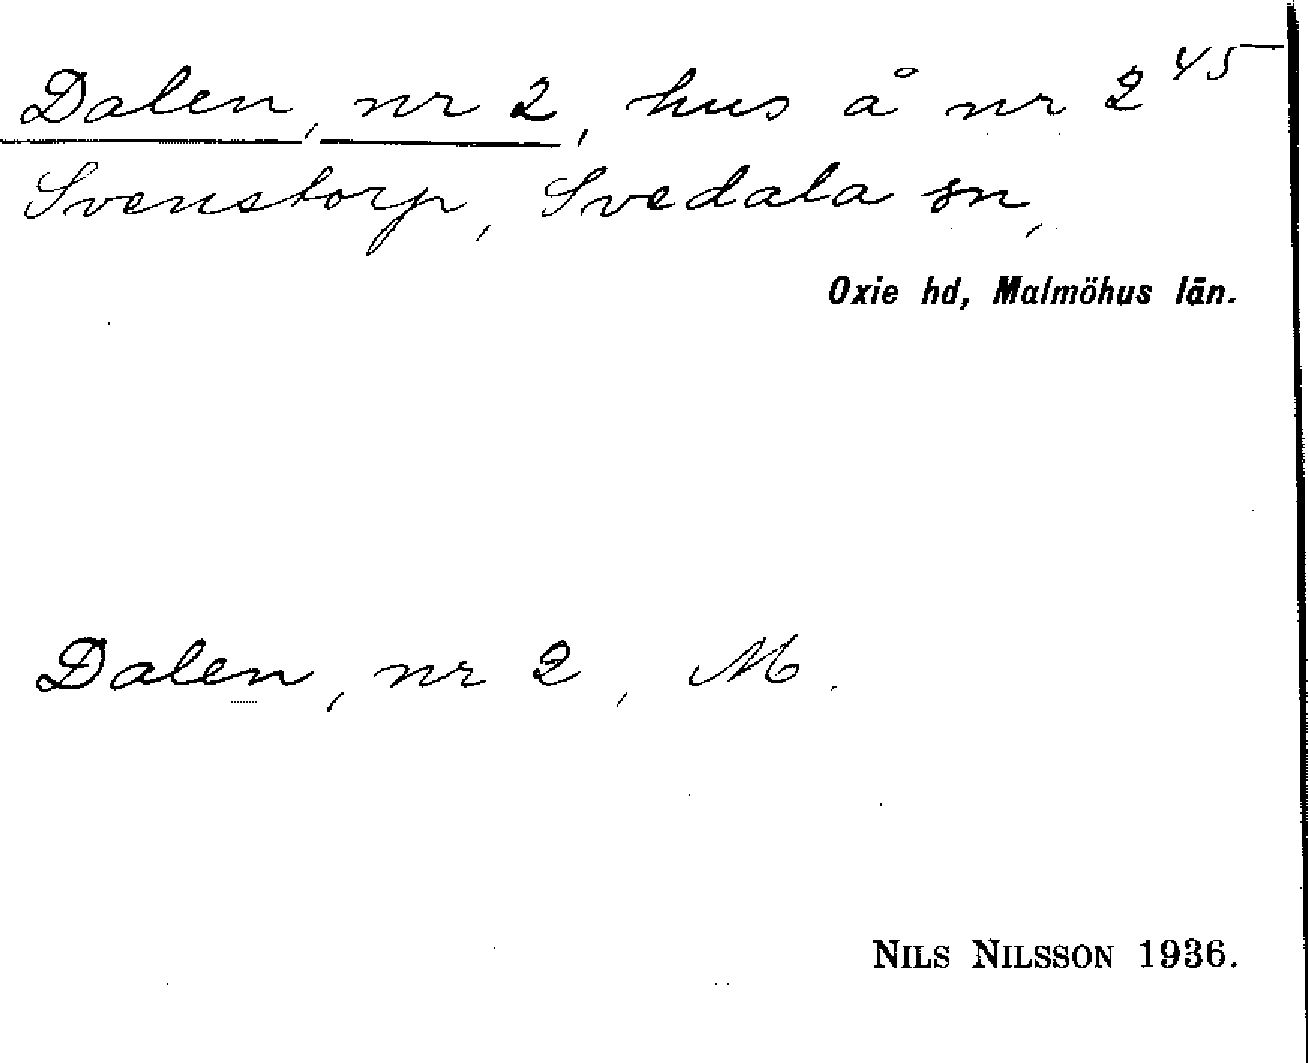 Dalen, nr 2, hus å nr 2 45
Svenstorp, Svedala sn,
Oxie hd, Malmöhus län.
Dalen, nr 2, M.
NILS NILSSON 1936.